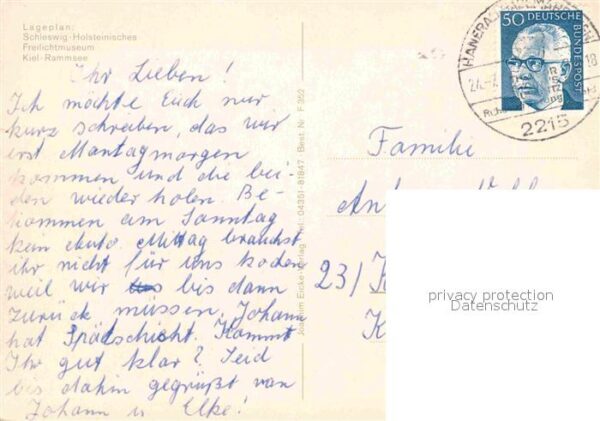 Lageplan:
Schleswig-Holsteinisches
Freilichtmuseum
Kiel-Rammsee
Ihr Lieben!
Ich möchte Euch nur
kurz schreiben, das wir
erst Mantagmorgen
kommen und die bei-
den wieder holen. Be-
kommen am Sonntag
kein Auto. Mittag brauchst
ihr nicht für uns kochen
weil wir bis dann
zurück müssen. Johann
hat Spädschicht. Kommt
Ihr gut klar? Seid
bis dahin gegrüßt van
Johann u Elke!
Joachim Eicke-Verlag Tel.: 04351-81847 Best. Nr. F 352
50 DEUTSCHE
BUNDESPOST
2215
Familie
23/
privacy protection
Datenschutz